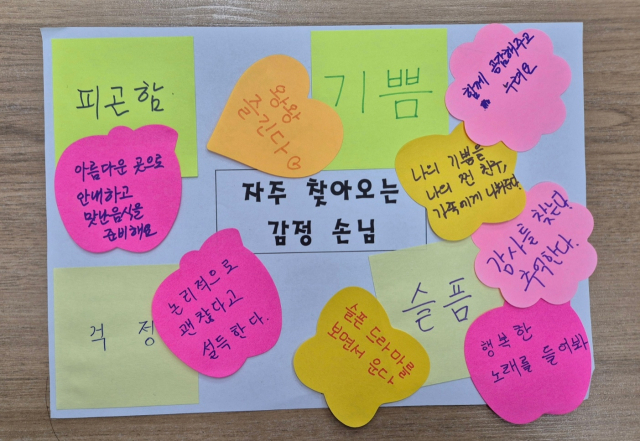 피곤함
아름다운 곳으로
안내하고
맛난음식을
준비해요
왕왕
즐긴다
기쁨
함께 공감해주고
누려요
나의 기쁨을
나의 찐 친구,
가족에게 나눠준다.
자주 찾아오는
감정 손님
걱정
논리적으로
괜찮다고
설득한다.
슬픈 드라마를
보면서 운다
슬픔
감사를 찾는다.
추억한다.
행복한
노래를 들어봐